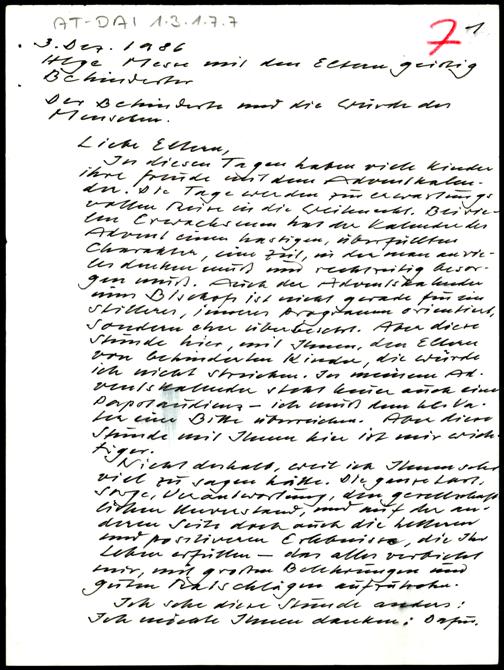 AT-DAI 1.3.1.7.7
7 1
3. Dez. 1986
Hlge Messe mit den Eltern geistig
Behinderter
Der Behinderte und die Würde des
Menschen.
Liebe Eltern,
In diesen Tagen haben viele Kinder
ihre Freude mit dem Adventskalen-
der. Die Tage werden zur erwartungs
vollen Reise in die Weihnacht. Bei vie-
len Erwachsenen hat der Kalender des
Advent einen hastigen, überfüllten
Charakter, eine Zeit, in der man an vie-
les denken muß und rechtzeitig besor-
gen muß. Auch der Adventskalender
eines Bischofs ist nicht gerade für ein
stilleres, inneres Programm orientiert,
sondern eher überbesetzt. Aber diese
Stunde hier, mit Ihnen, den Eltern
von behinderten Kinder, die würde
ich nicht streichen. In meinem Ad-
ventskalender steht heuer auch eine
Papstaudienz – ich muß dem hl. Va-
ter eine Bitte überreichen. Aber diese
Stunde mit Ihnen hier ist mir wich-
tiger.
Nicht deshalb, weil ich Ihnen sehr
viel zu sagen hätte. Die ganze Last,
Sorge, Verantwortung, den gesellschaft
lichen Unverstand, und auf der an-
deren Seite doch auch die helleren
und positiveren Erlebnisse, die Ihr
Leben erfüllen – das alles verbietet
mir, mit großen Belehrungen und
guten Ratschlägen aufzuwarten.
Ich sehe diese Stunde anders:
Ich möchte Ihnen danken: Dafür,